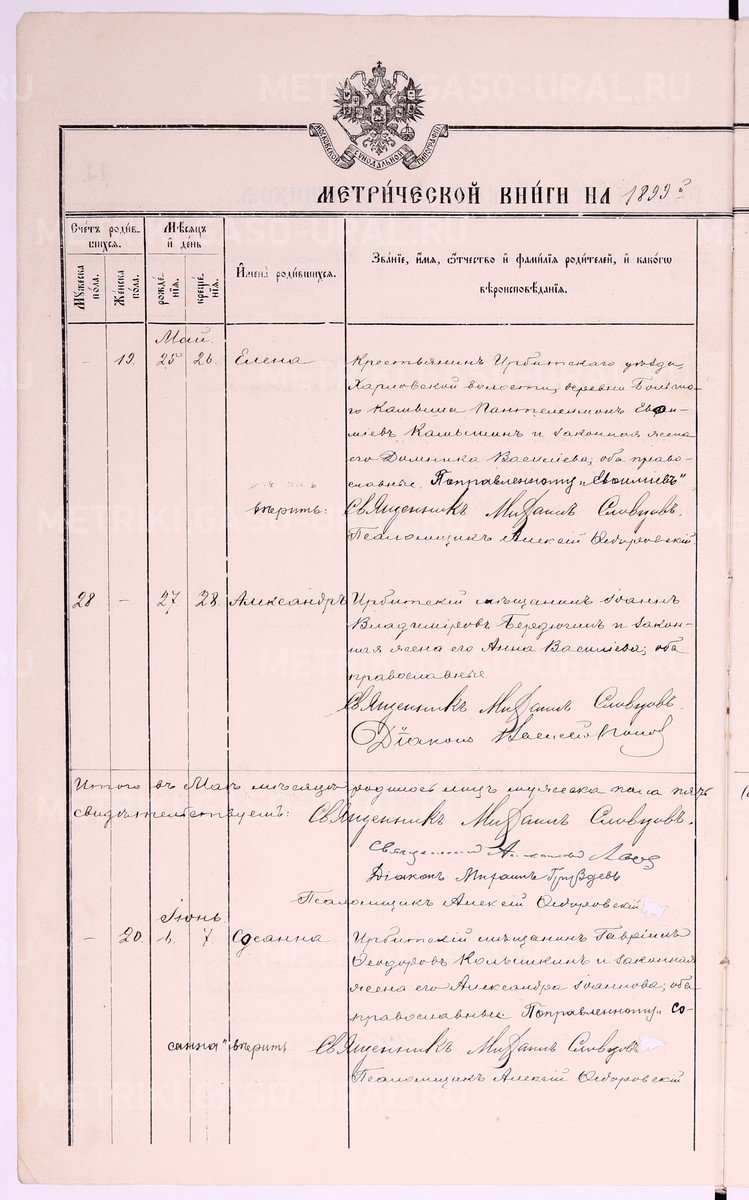 METRIKI.GASO-URAL.RU
МОСКОВСКОЙ СѴНОДАЛЬНОЙ ТИПОГРАФІИ
МЕТРИ́ЧЕСКОЙ КНИ́ГИ НА 1899 й
Сче́тъ роди́вшихся.
Мꙋ́жеска по́ла.
Же́нска по́ла.
Мѣ́сяцъ и́ де́нь
рожде́нїя.
креще́нїя.
И҆мена̀ роди́вшихся.
Зва́нїе, и҆́мя, ѻ҆́тчество и҆ фами́лїя роди́телей, и҆ како́гѡ
вѣроисповѣ́данїя.
Май.
- 19. 25 26. Елена Крестьянинъ Ирбитскаго уѣзда,
Харловской волости, деревни Большо-
го Камыша Пантелеимонъ Евфи-
міевъ Камышинъ и законная жена
его Домника Васильева; оба право-
славные. Поправленному „Евѳиміевъ"
вѣрить: Священникъ Михаилъ Словцовъ.
Псаломщикъ Алексій Ѳедоровскій
28 - 27. 28. Александръ Ирбитскій мѣщанинъ Іоаннъ
Владиміровъ Бередюгинъ и закон-
ная жена его Анна Васильева; оба
православные
Священникъ Михаилъ Словцовъ.
Діаконъ Василій Поповъ
Итого въ Маѣ мѣсяцѣ родилось лицъ мужеска пола пять
свидѣтельствуемъ: Священникъ Михаилъ Словцовъ.
Священникъ
Діаконъ Груздевъ
Псаломщикъ Алексій Ѳедоровскій
Іюнь
- 20. 6. 7. Сосанна Ирбитскій мѣщанинъ Гавріилъ
Ѳеодоровъ Колышкинъ и законная
жена его Александра Іоаннова; оба
православные Поправленному „Со-
санна" вѣрить. Священникъ Михаилъ Словцовъ
Псаломщикъ Алексій Ѳедоровскій